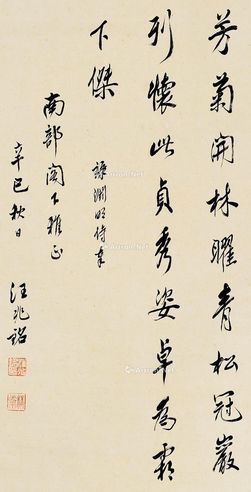 芳菊開林曜青松冠巖
列懷此貞秀姿卓為霜
下傑
錄淵明侍年
南部閣下雅正
辛巳秋日
汪兆銘